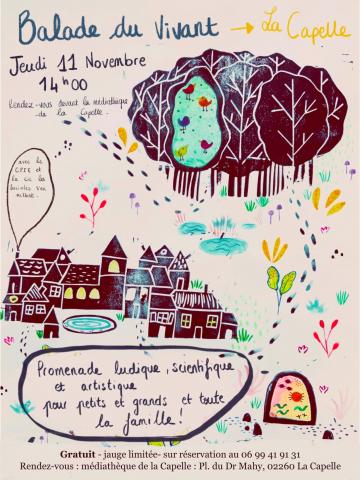 Balade du Vivant → La Capelle
Jeudi 11 Novembre
14h00
Rendez-vous devant la médiathèque
de la Capelle.
avec le
CPIE et
la Cie les
Promenade ludique, scientifique
et artistique
pour petits et grands et toute
la famille !
Gratuit - jauge limitée- sur réservation au 06 99 41 91 31
Rendez-vous : médiathèque de la Capelle : Pl. du Dr Mahy, 02260 La Capelle